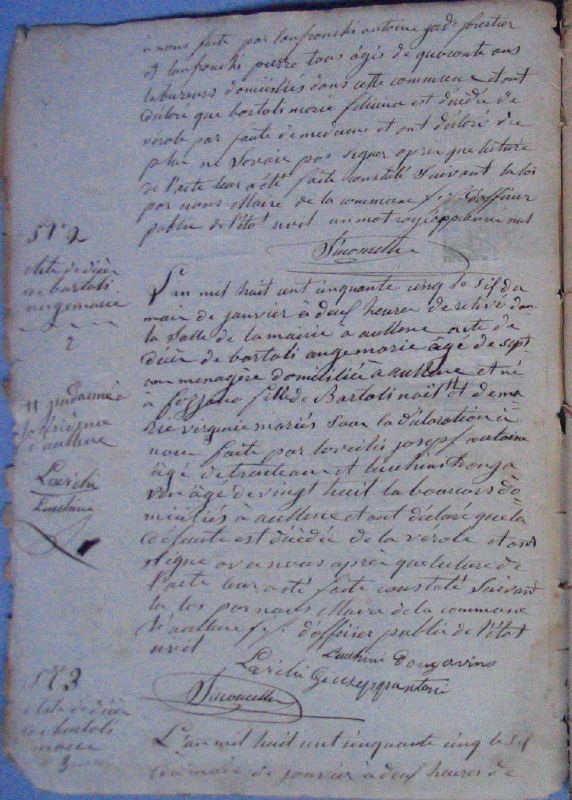 à nous faite par lanfranchi antoine garde forestier
et lanfranchi pierre tous âgés de quarante ans
laboureurs domiciliés dans cette commune et ont
déclaré que bartoli marie filiana est décédée de
vérole par faute de medecins et ont déclaré de
plus ne savoir pas signer après que lecture
de l'acte leur a été faite constaté suivant la loi
par nous Maire de la commune f. f. d'officier
public de l'état civil un mot rayé
Simonetti
N° 2
Acte de décès
de bartoli
angemarie
2
L'an mil huit cent cinquante cinq le six du
mois de janvier à deux heures de relevé dans
la salle de la mairie a aullene acte de
décès de bartoli angemarie âgé de sept
ans menagère domiciliée à aullene et né
à fozzano fille de Bartoli noël et de ma
rie virginie mariés sous la déclaration à
nous faite par lovichi joseph antoine
âgé de trente ans et lucchini donga
vino âgé de vingt huit laboureurs do
miciliés à aullene et ont déclaré que la
défunte est décédée de la verole et ont
signé avec nous après que lecture de
l'acte leur a été faite constaté suivant
la loi par nous Maire de la commune
d'aullene f. f. d'officier public de l'état
civil
Lucchini Dongavino
Simonetti
N° 3
Acte de décès
de bartoli
3
L'an mil huit cent cinquante cinq le six
du mois de janvier à deux heures de